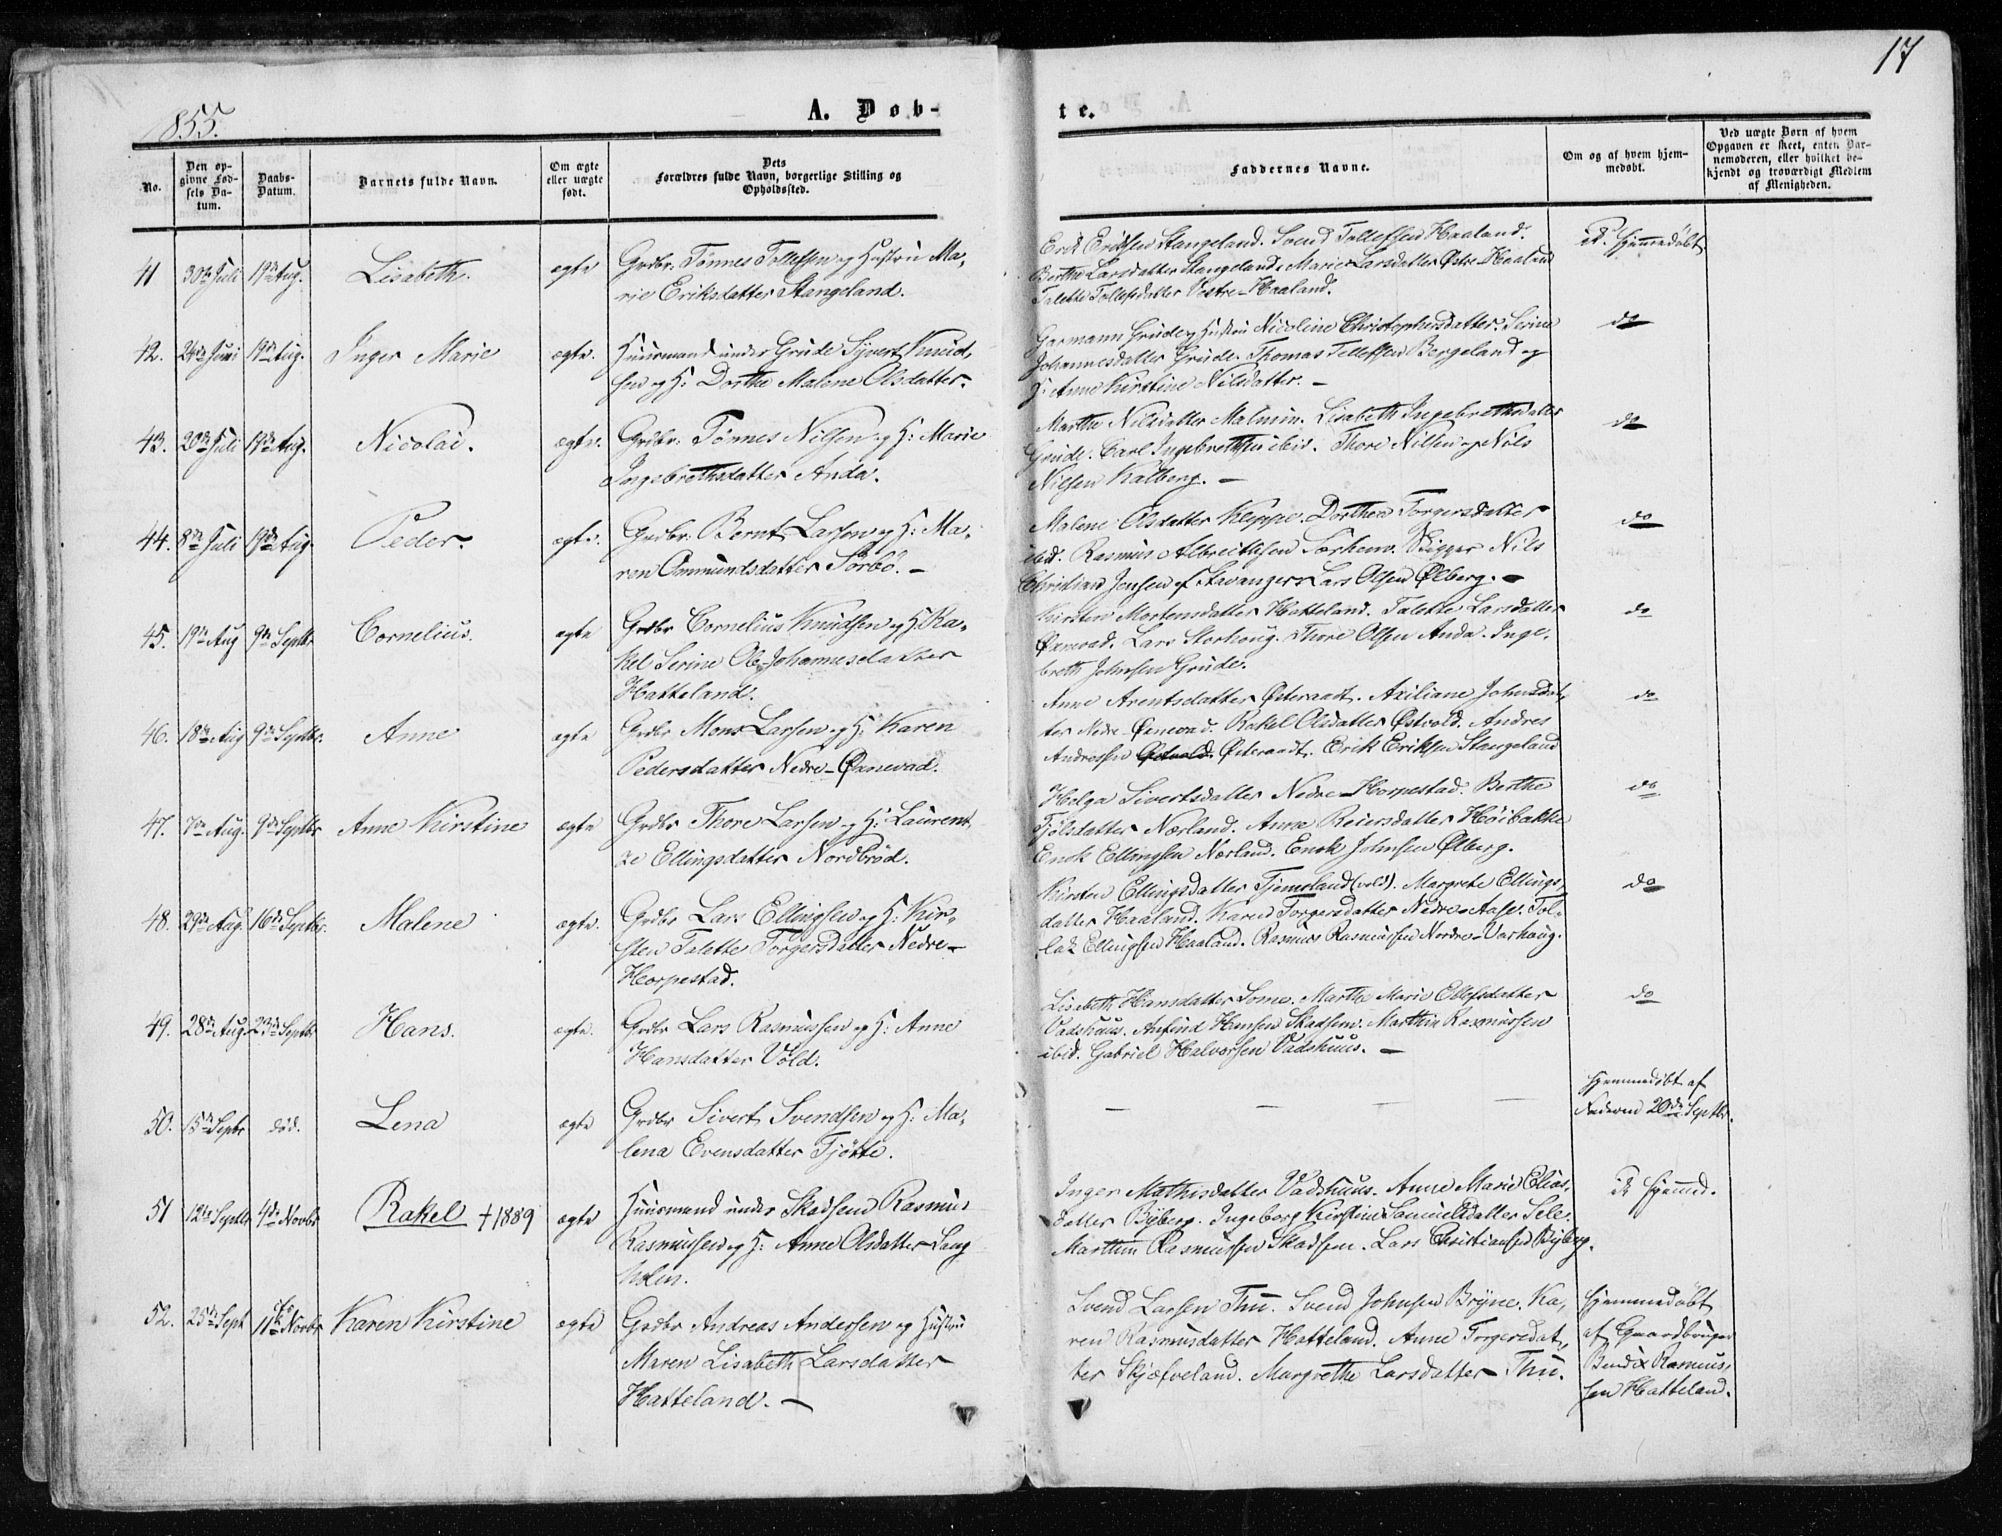 1855.
A. Døb-
te.
17
No.
Den op-
givne Fød-
sels Da-
tum.
Daabs-
Datum.
Barnets fulde Navn.
Om ægte
eller uægte
født.
Dets
Forældres fulde Navn, borgerlige Stilling og
Opholdssted.
Faddernes Navne.
Om og af hvem hjem-
medøbt.
Ved uægte Børn af hvem
Opgaven er skeet, enten Bar-
nemoderen, eller hvilket be-
kjendt og troværdigt Medlem
af Menigheden.
41 30te Juli 19de Aug. Lisabeth. ægte
Grdbr. Tønnes Tollefsen og Hustru Ma-
rie Eriksdatter Stangeland.
Erik Eriksen Stangeland. Svend Tollefsen Haaland.
Berthe Larsdatter Stangeland. Marie Larsdatter Østre-Haaland
Talette Tollefsdatter Vestre-Haaland.
ei hjemmedøbt
42. 24de Juni 19de Aug. Inger Marie ægte.
Huusmand under Grude Sivert Knud-
sen og H: Dorthe Malene Olsdatter.
Garmann Grude og Hustru Nicoline Christophersdatter. Serine
Johannesdatter Grude. Thomas Tollefsen Bergeland og
H: Anne Kirstine Nilsdatter. –
do
43. 20de Juli 19de Aug. Nicolai. ægte.
Grdbr. Tønnes Nilsen og H: Marie
Ingebrethsdatter Anda.
Marthe Nilsdatter Malmin. Lisabeth Ingebrethsdatter
Grude. Carl Ingebrethsen ibid. Thore Nilsen og Nils
Nilsen Kalberg. –
do
44. 8de Juli 19de Aug. Peder. ægte.
Grdbr. Bernt Larsen og H: Ma-
ren Ommundsdatter Sørbø. –
Malene Olsdatter Kleppe. Dorthea Torgersdatter
ibid. Rasmus Albrethsen Sørheim. Skipper Nils
Christian Jensen af Stavanger. Lars Olsen Ølberg. –
do
45. 19de Aug 9de Septbr Cornelius. ægte
Grdbr Cornelius Knudsen og H: Ra-
kel Serine Ole Johannesdatter
Hatteland.
Kirsten Mortensdatter Hatteland. Talette Larsdatter
Øxnevad. Lars Storhoug. Thore Olsen Anda. Inge-
breth Johnsen Grude.
do
46. 18de Aug 9de Septbr. Anne ægte
Grdbr Mons Larsen og H: Karen
Pedersdatter Nedre-Øxnevad.
Anne Arentsdatter Østeraadt. Axiliane Johnsdat-
ter Nedre-Øxnevad. Rakel Olsdatter Østvold. Andres
Andresen Østvold. Østeraadt. Erik Eriksen Stangeland
do
47. 7de Aug. 9de Septbr Anne Kirstine ægte
Grdbr Thore Larsen og H: Laurent-
ze Ellingsdatter Nordbrød.
Helga Sivertsdatter Nedre-Horpestad. Berthe
Fjølsdatter Nærland. Anne Reiersdatter Høibakke
Enok Ellingsen Nærland. Enok Johnsen Ølberg.
do
48. 29de Aug. 16de Septbr. Malene ægte.
Grdbr Lars Ellingsen og H: Kir-
sten Talette Torgersdatter Nedre-
Horpestad.
Kirsten Ellingsdatter Tjemsland (vold). Margrete Ellings-
datter Haaland. Karen Torgersdatter Nedre-Aase. Tol-
lak Ellingsen Haaland. Rasmus Rasmussen Nordre-Varhoug.
do
49. 28de Aug. 23de Septbr Hans. ægte.
Grdbr Lars Rasmussen og H: Anne
Hansdatter Vold.
Lisabeth Hansdatter Some. Marthe Marie Ellefsdatter
Vadshuus. Anfind Hansen Skadsem. Marthin Rasmussen
ibid. Gabriel Halvorsen Vadshuus. –
do
50. 15de Septbr død. Lena ægte
Grdbr Sivert Svendsen og H: Ma-
lena Evensdatter Tjøtte.
– – – –
hjemmedøbt af
Faderen 20de Septbr.
51 12te Septbr 4de Novbr Rakel †1889 ægte
Huusmand under Skadsem Rasmus
Rasmussen og H: Anne Olsdatter Lang
holen.
Inger Mathisdatter Vadshuus. Anne Marie Elias-
datter Byberg. Ingeborg Kirstine Samuelsdatter Sele.
Marthin Rasmussen Skadsem. Lars Christiansen Byberg.
ei hjemmed.
52. 25de Sept 11te Novbr Karen Kirstine ægte
Grdbr Andreas Andersen og Hustru
Maren Lisabeth Larsdatter
Hatteland. –
Svend Larsen Thu. Svend Johnsen Bryne. Ka-
ren Rasmusdatter Hatteland. Anne Torgersdat-
ter Skjæfveland. Margrethe Larsdatter Thu.
hjemmedøbt
af Gaardbruger
Bendix Rasmus-
sen Hatteland.